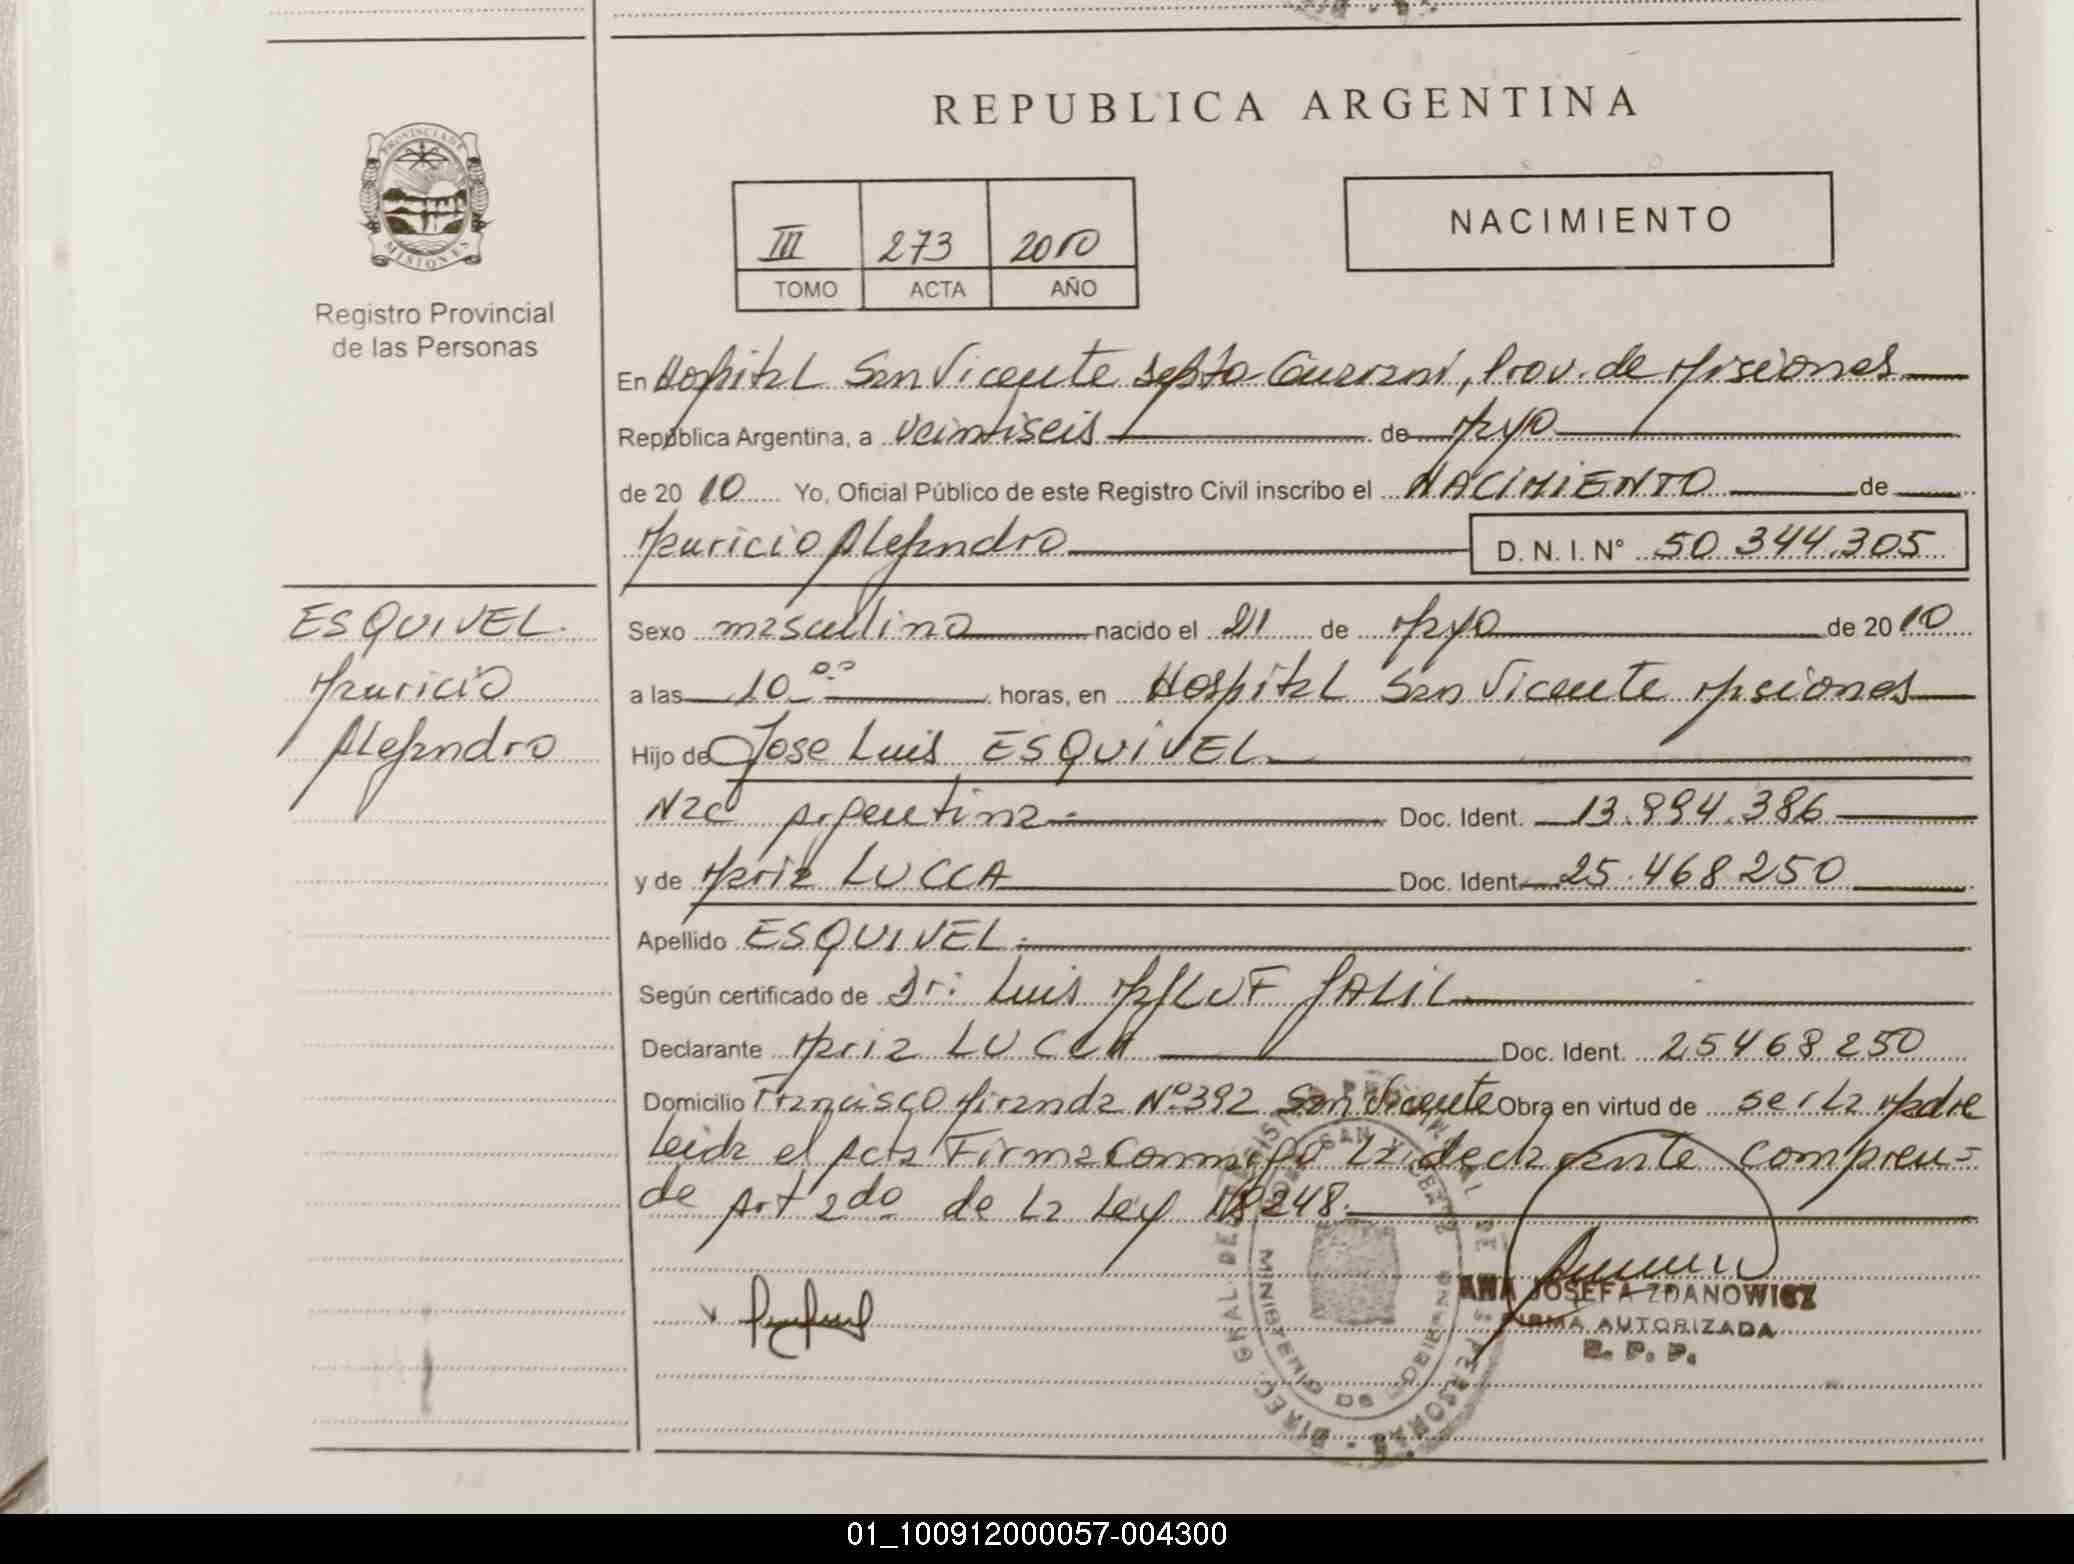 REPUBLICA ARGENTINA
PROVINCIA DE
MISIONES
Registro Provincial
de las Personas
III 273 2010
TOMO ACTA AÑO
NACIMIENTO
En Hospital San Vicente Depto Guarani, Prov. de Misiones
República Argentina, a veintiseis de Mayo
de 2010 Yo, Oficial Público de este Registro Civil inscribo el NACIMIENTO de
Mauricio Alejandro D. N. I. N° 50.344.305
ESQUIVEL.
Mauricio
Alejandro
Sexo masculino nacido el 21 de Mayo de 2010
a las 10 oo horas, en Hospital San Vicente Misiones
Hijo de Jose Luis ESQUIVEL
Nac Argentina Doc. Ident. 13.994.386
y de Maria LUCCA Doc. Ident. 25.468250
Apellido ESQUIVEL.
Según certificado de Dr: Luis JALIL
Declarante Maria LUCCA Doc. Ident. 25468250
Domicilio Francisco Miranda N° 392 San Vicente Obra en virtud de ser La Madre
Leida el Acta Firma Conmigo La declarante compren=
de Art 2do de La Ley 18248.
ANA JOSEFA ZDANOWICZ
FIRMA AUTORIZADA
R. P. P.
SAN VICENTE
MINISTERIO DE GOBIERNO
01_100912000057-004300